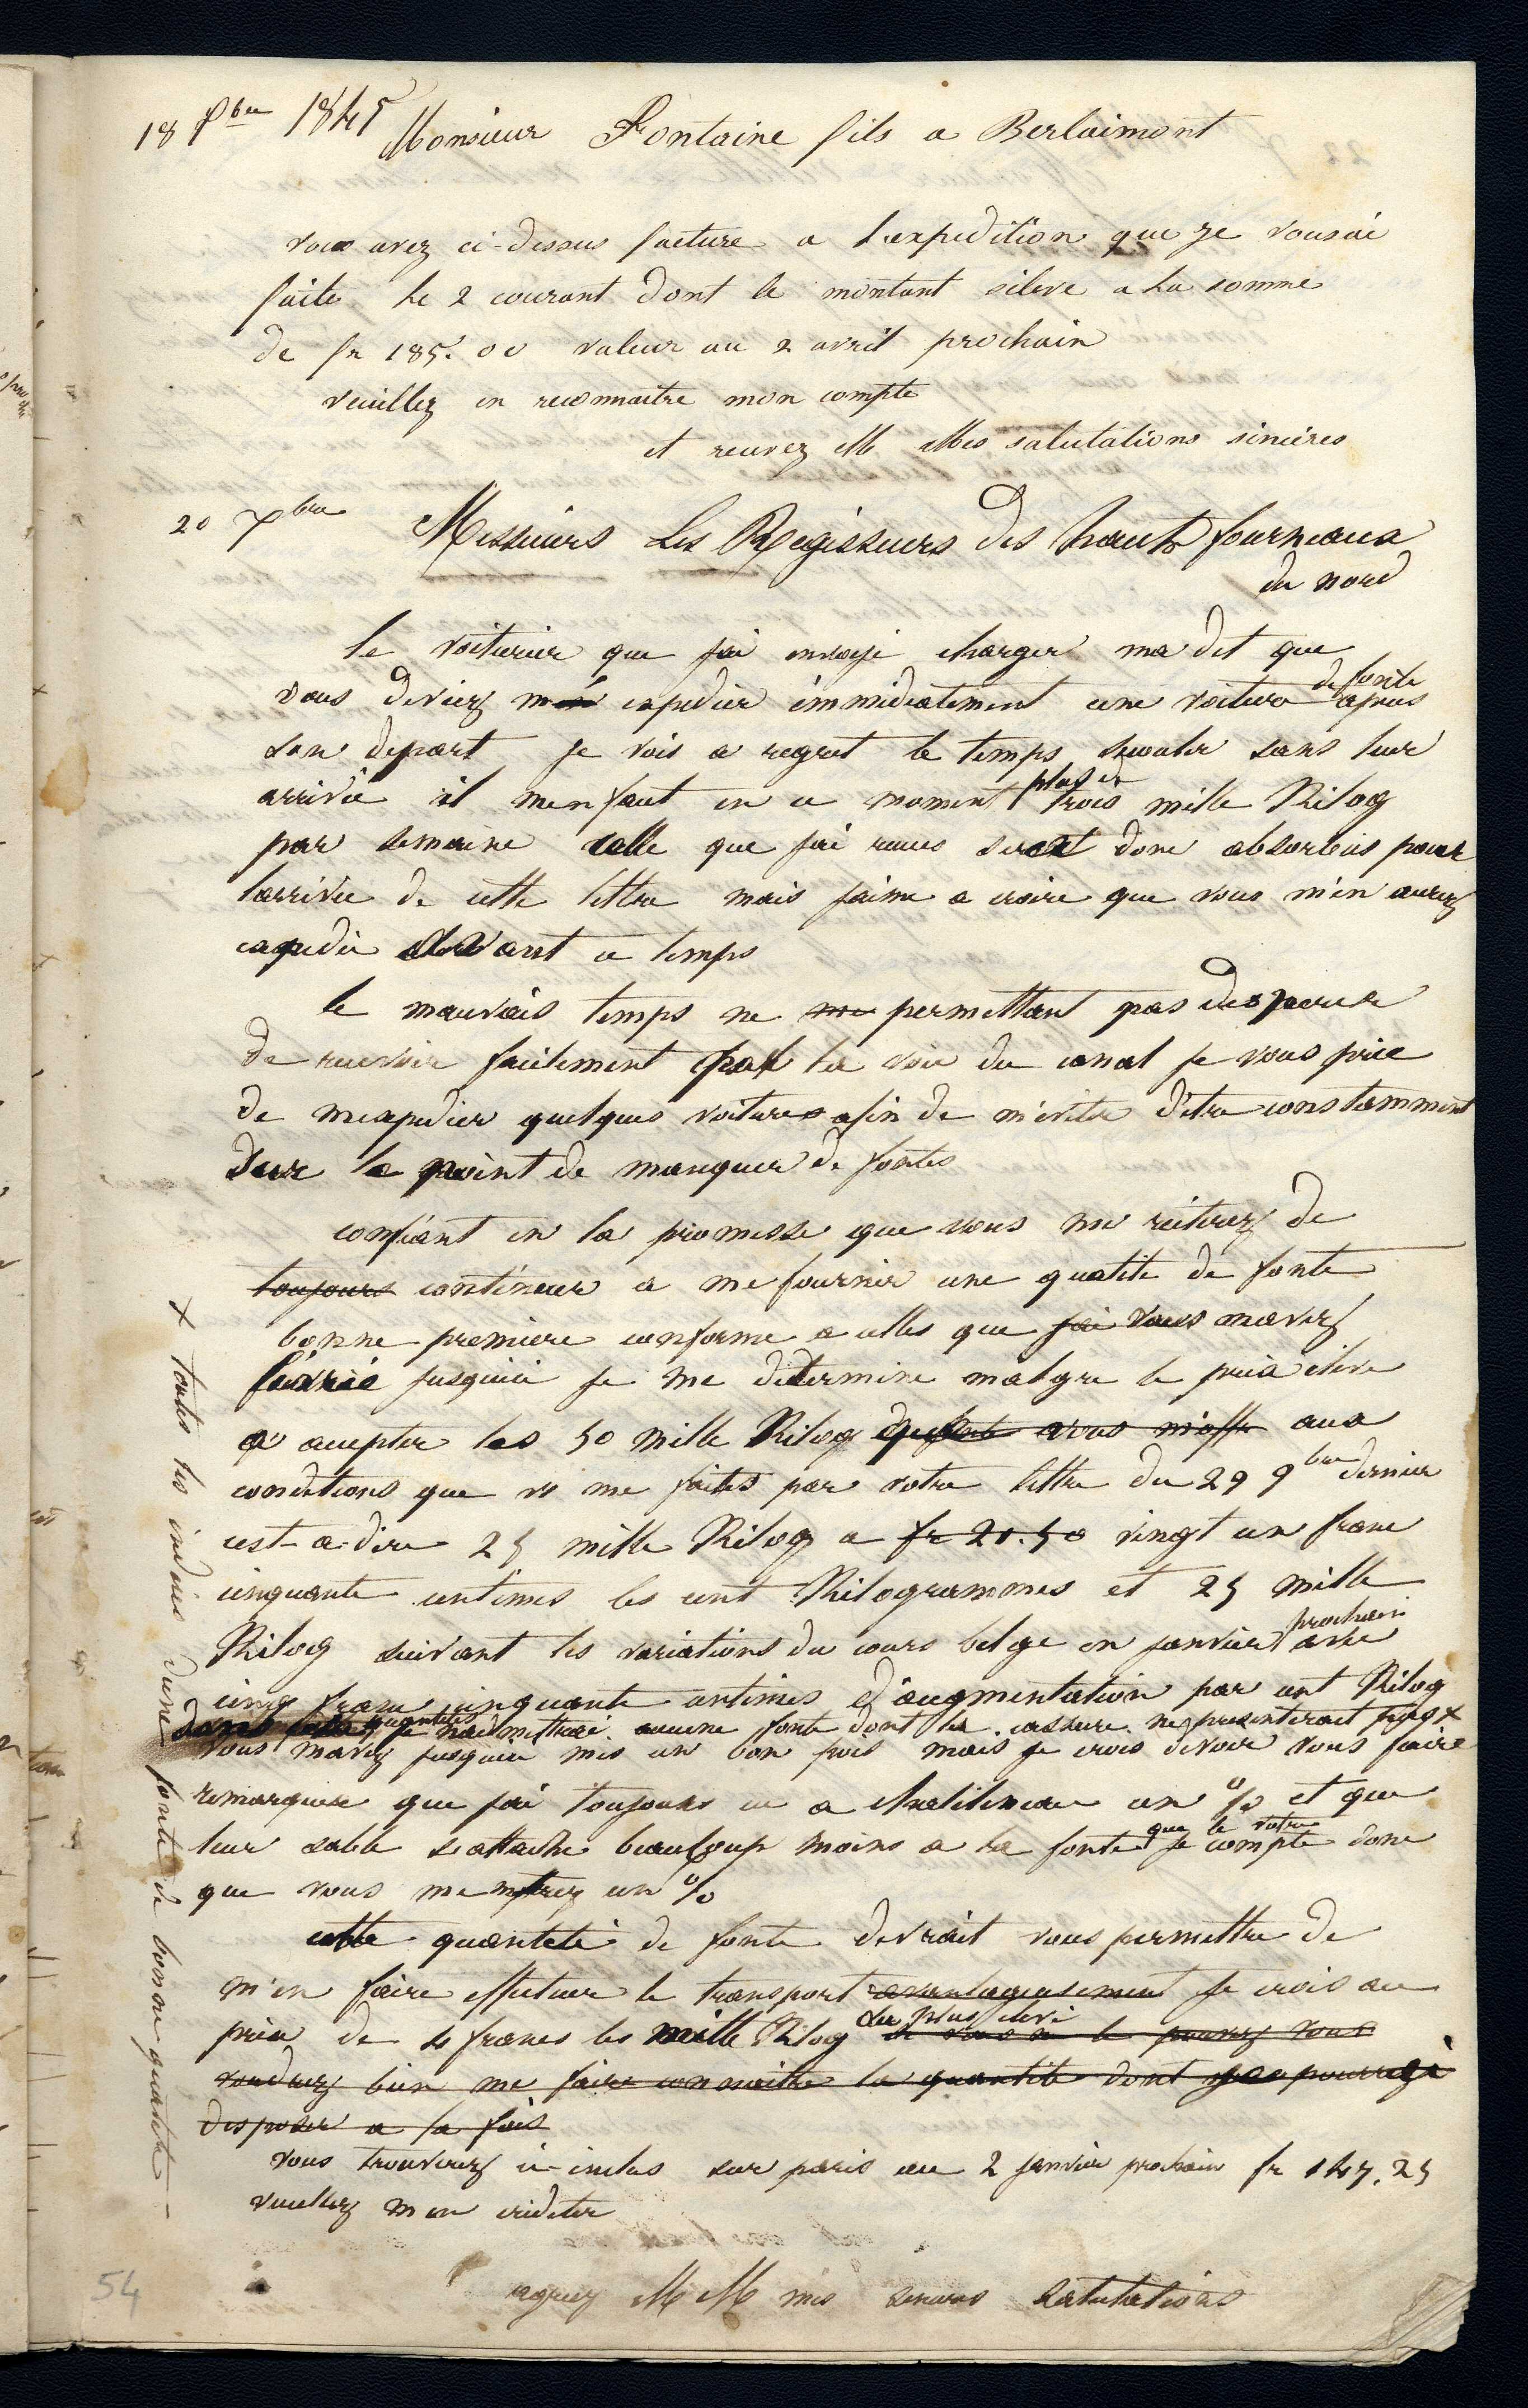 18 Xbre 1845 Monsieur Fontaine fils a Berlaimont
vous avez ci-dessus facture a lexpedition que je vous ai
faite le 2 courant dont le montant sélève a la somme
de fr 185.00 valeur au 2 avril prochain
veuillez en reconnaitre mon compte
et recevez M Mes salutations sincères
20 Xbre Messieurs Les Regisseurs des hauts fourneaux
du nord
le voiturier que jai envoyé charger ma dit que
vous deviez m expedier immédiatement une voiture de fonte apres
son depart je vois a regret le temps secouler sans leur
arrivée il men faut en ce moment plus de trois mille Kilog
par semaine celle que jai recues serait donc absorbées pour
larrivée de cette lettre mais jaime a croire que vous m'en aurez
expedié avant ce temps
le mauvais temps ne me permettant pas desperer
de recevoir facilement par la voie du canal je vous prie
de mexpedier quelques voitures afin de m'eviter d'etre constamment
sur le point de manquer de fontes
confiant en la promesse que vous me reiterez de
toujours continuer a me fournir une qualité de fonte
bonne premiere conforme a celles que jai vous mavez
livrée jusquici je me determine malgre le prix élevé
a accepter les 50 mille Kilog que vous m'offre aux
conditions que vs me faites par votre lettre du 29 9bre dernier
cest-a-dire 25 mille Kilog a fr 21.50 vingt un franc
cinquante centimes les cent Kilogrammes et 25 mille
Kilog suivant les variations du cours belge en janvier prochain avec
cinq franc cinquante centimes d'augmentation par cent Kilog
dans cette quantité je nadmettrai aucune fonte dont la cassure ne presenterait pas x
vous mavez jusquici mis un bon poids mais je crois devoir vous faire
remarquer que jai toujours eu a Chatelineau un % et que
leur sable sattache beaucoup moins a la fonte que le votre je compte donc
que vous me mettrez un %
cette quantité de fonte devrait vous permettre de
m'en faire effectuer le transport avantageusement je crois au
prix de 4 francs les mille Kilog au plus elevé si vous ne le pouvez vous
voudrez bien me faire connaitre la quantité dont je pourrai
disposer a la fois
vous trouverez ci-inclus sur paris au 2 janvier prochain fr 147.25
veuillez m en crediter
agreez M M mes sinceres salutations
x toutes les indices dune fonte de bonne qualité
54